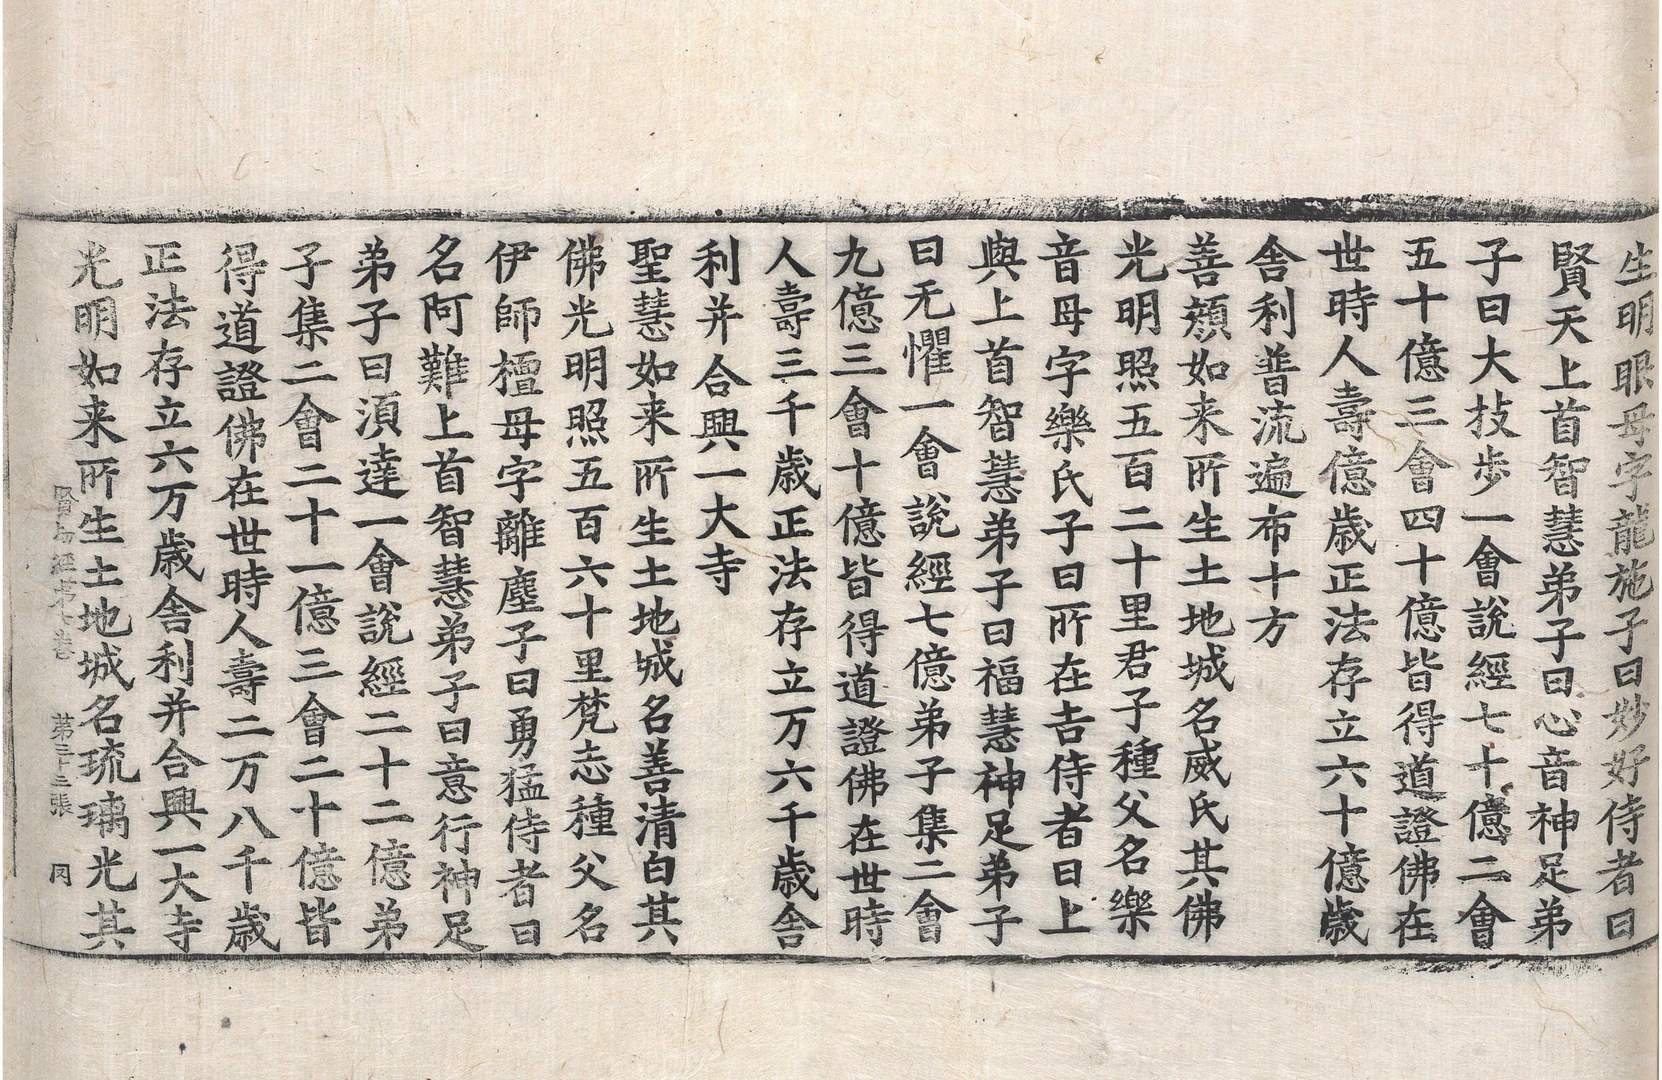 生明眼母字龍施子曰妙好侍者曰
賢天上首智慧弟子曰心音神足弟
子曰大技步一會說經七十億二會
五十億三會四十億皆得道證佛在
世時人壽億歲正法存立六十億歲
舍利普流遍布十方
善頬如来所生土地城名威氏其佛
光明照五百二十里君子種父名樂
音母字樂氏子曰所在吉侍者曰上
與上首智慧弟子曰福慧神足弟子
曰无懼一會說經七億弟子集二會
九億三會十億皆得道證佛在世時
人壽三千歲正法存立万六千歲舍
利并合興一大寺
聖慧如来所生土地城名善清白其
佛光明照五百六十里梵志種父名
伊師檀母字離塵子曰勇猛侍者曰
名阿難上首智慧弟子曰意行神足
弟子曰湏達一會說經二十二億弟
子集二會二十一億三會二十億皆
得道證佛在世時人壽二万八千歲
正法存立六万歲舍利并合興一大寺
光明如来所生土地城名琉璃光其
賢劫經第七卷 第二十三張 同